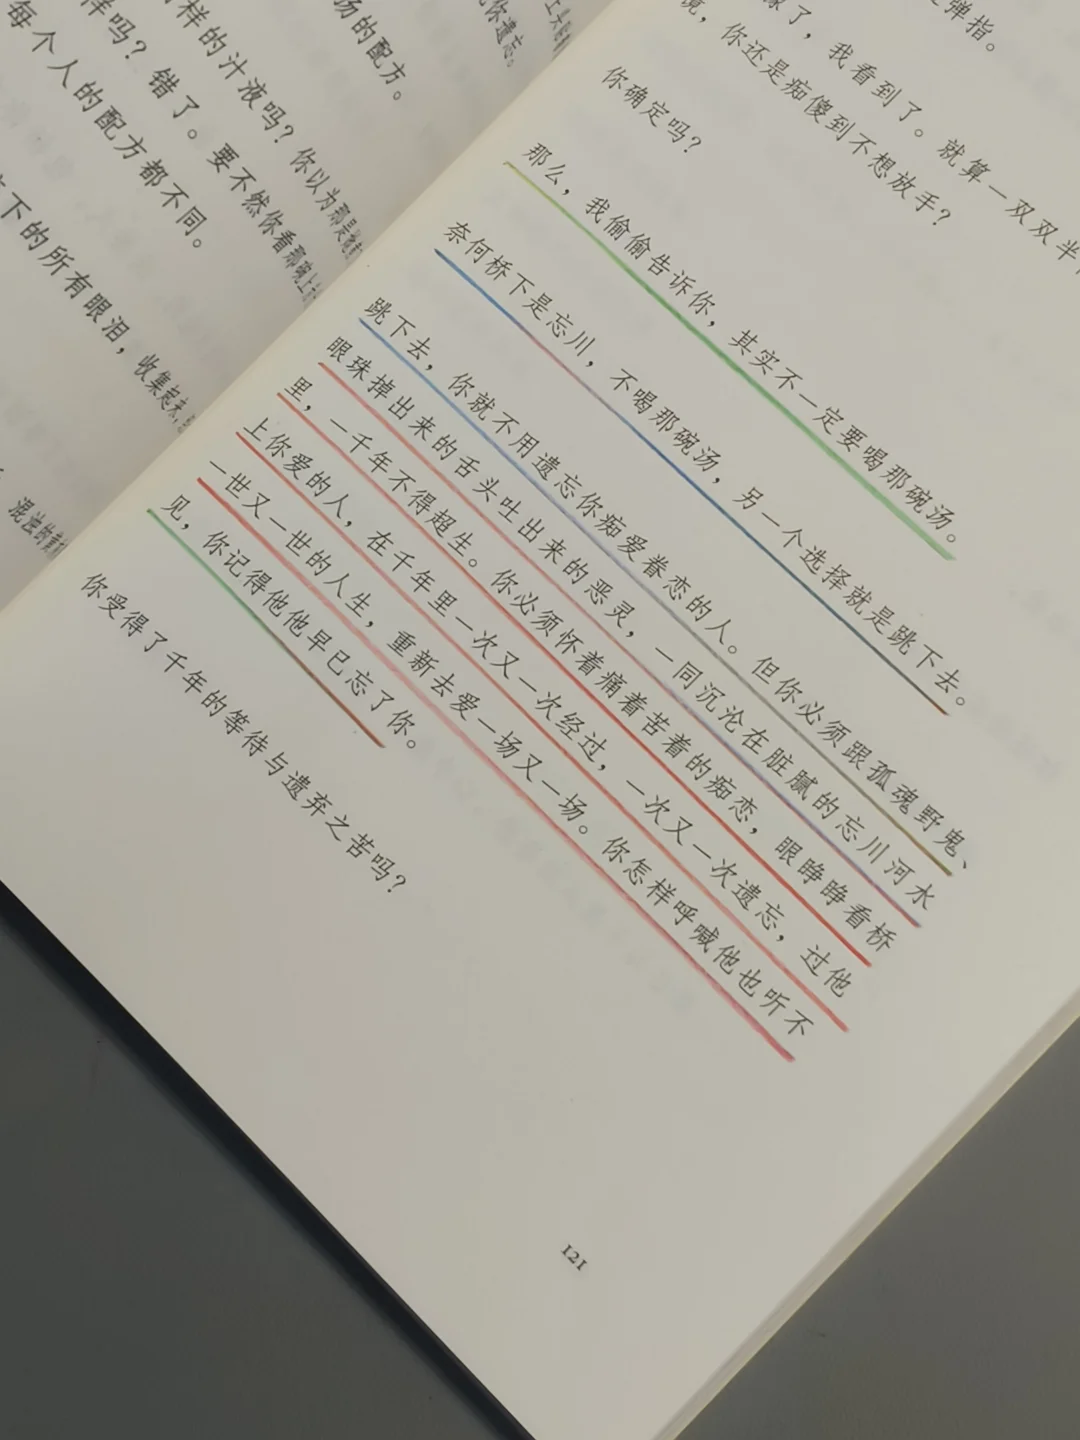 汤的配方。
同样的汁液吗？你以为那是
样吗？错了。要不然你看那碗上
每个人的配方都不同。
下的所有眼泪，收集起来，
弹指。
了，我看到了。就算一双双半
境，你还是痴傻到不想放手？
你确定吗？
那么，我偷偷告诉你，其实不一定要喝那碗汤。
奈何桥下是忘川，不喝那碗汤，另一个选择就是跳下去。
跳下去，你就不用遗忘你痴爱眷恋的人。但你必须跟孤魂野鬼、
眼珠掉出来的舌头吐出来的恶灵，一同沉沦在脏腻的忘川河水
里，一千年不得超生。你必须怀着痛着苦着的痴恋，眼睁睁看桥
上你爱的人，在千年里一次又一次经过，一次又一次遗忘，过他
一世又一世的人生，重新去爱一场又一场。你怎样呼喊他也听不
见，你记得他他早已忘了你。
你受得了千年的等待与遗弃之苦吗？
121